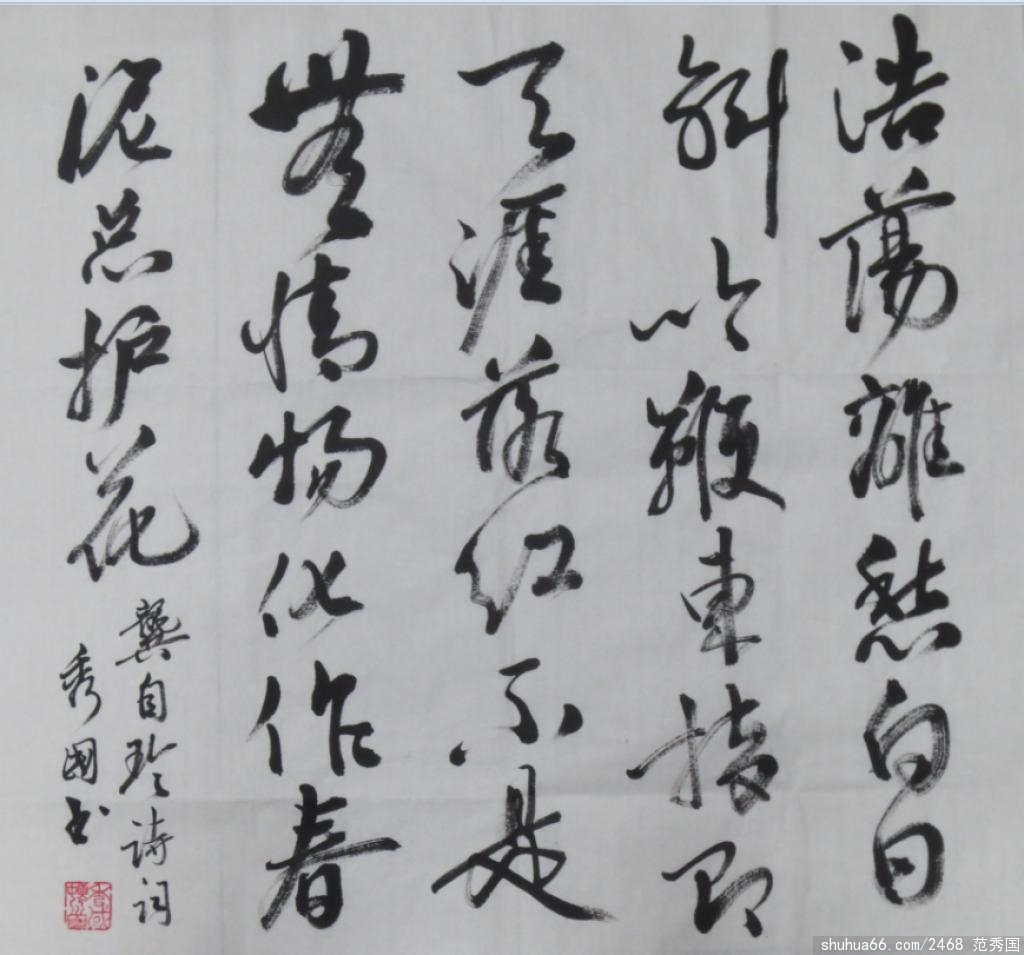 浩蕩離愁白日
斜吟鞭東指即
天涯落红不是
無情物化作春
泥总护花
龔自珍诗词
秀國书
shuhua66.com/2468 范秀国